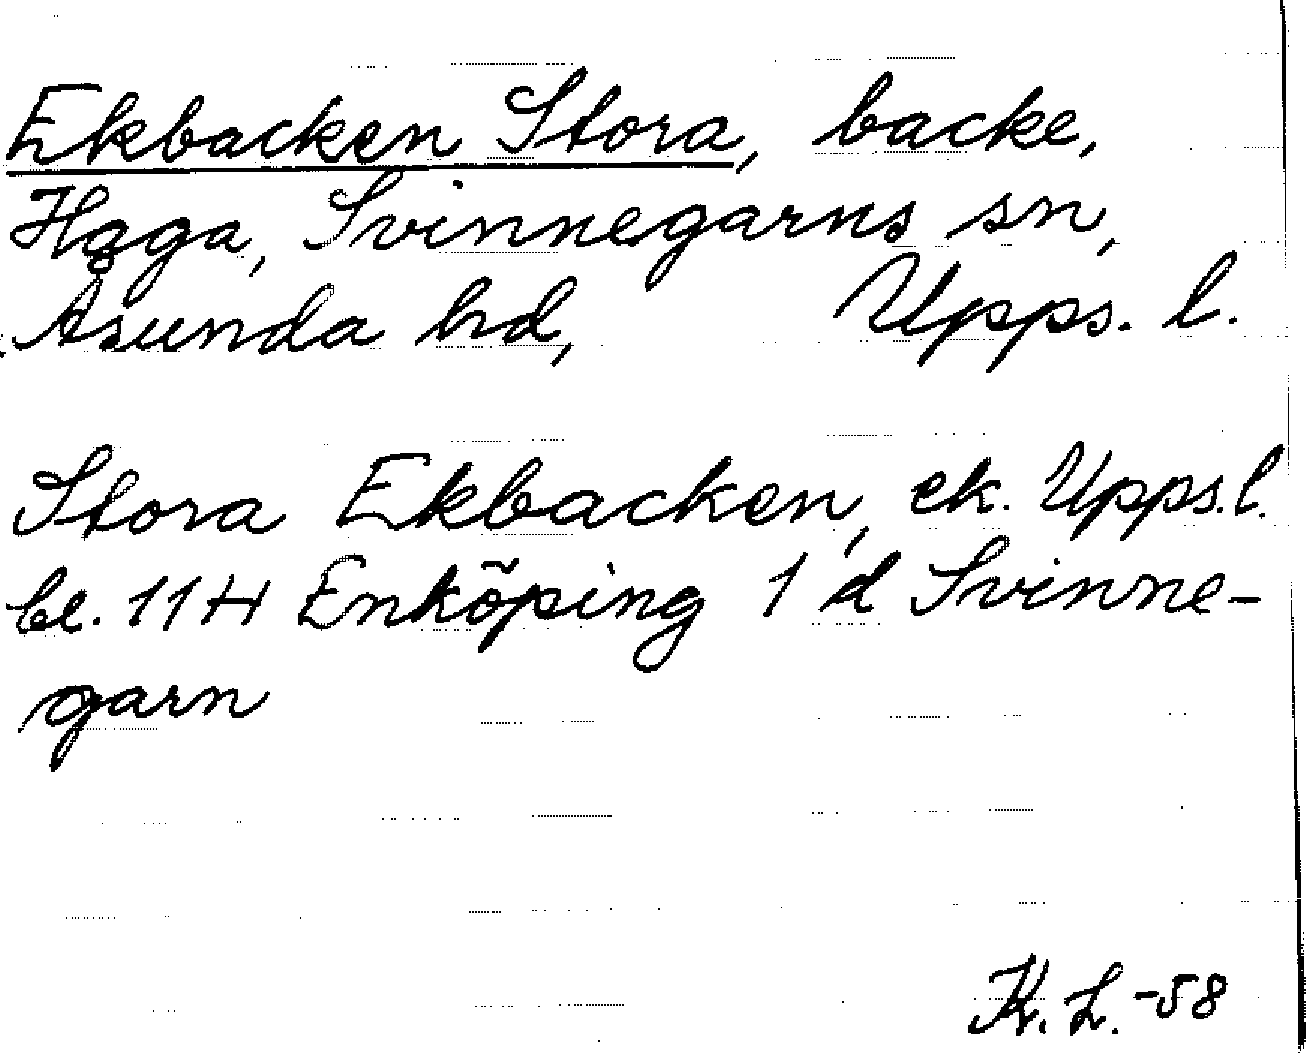 Ekbacken Stora, backe,
Haga, Svinnegarns sn,
Åsunda hd, Upps. l.
Stora Ekbacken, ek. Upps. l.
bl. 11H Enköping 1 d Svinne-
garn
K. L. -58